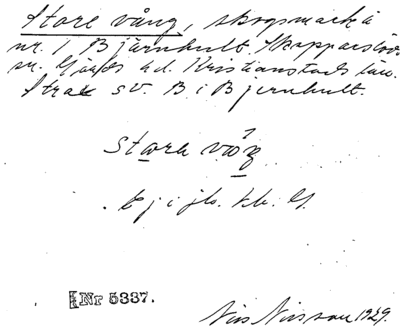 Store vång, skogsmark å
nr. 1 Bjärnhult. Skepparslövs
sn. Gärds hd. Kristianstads län.
Strax sv. B i Bjernhult.
stara våŋ
Ej i jb. kb. G.
Nr 5337.
Nils Nilsson 1929.